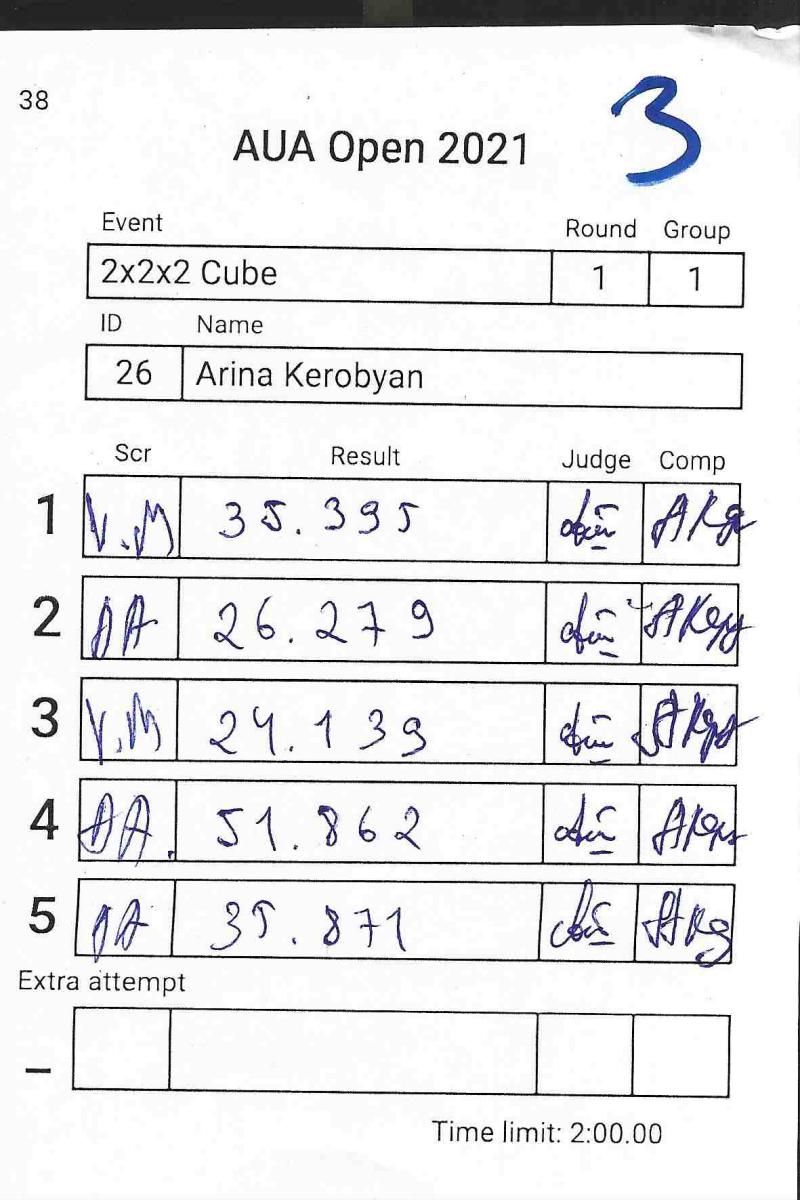 38
3
AUA Open 2021
Event Round Group
2x2x2 Cube 1 1
ID Name
26 Arina Kerobyan
Scr Result Judge Comp
1 V.M 35.395
2 AA 26.279
3 V.M 24.139
4 AA. 51.862
5 AA 35.871
Extra attempt
_
Time limit: 2:00.00